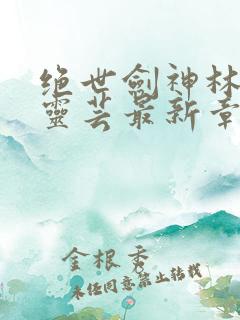 绝世劍神林
靈芸最新章
金根秀
未经同意禁止转载